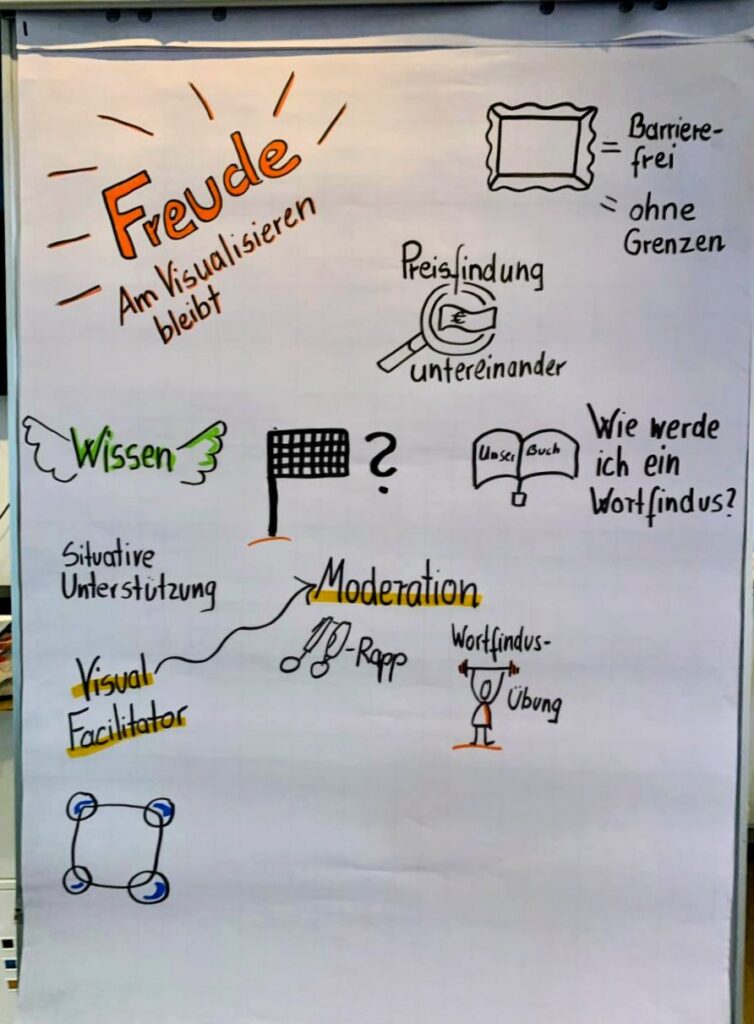 Freude
Am Visualisieren
bleibt
= Barriere-
frei
= ohne
Grenzen
Preisfindung
€
untereinander
Wissen
?
Unser Buch
Wie werde
ich ein
Wortfindus?
Situative
Unterstützung
Moderation
-Rapp
Visual
Facilitator
Wortfindus-
Übung